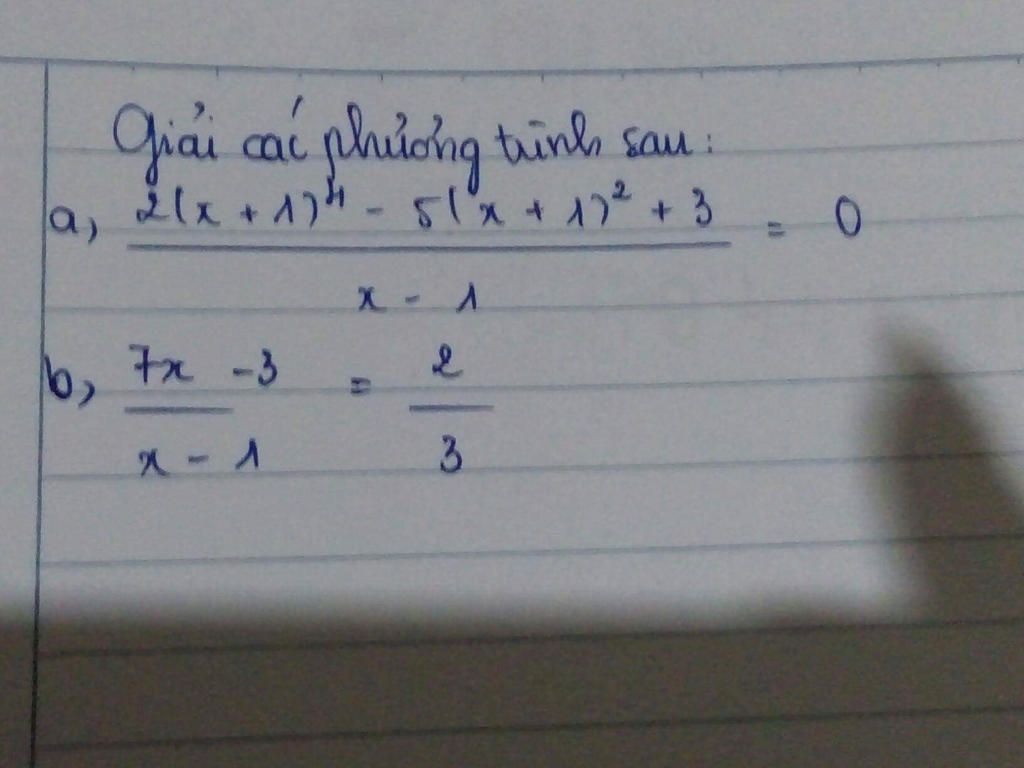 Giải các phương trình sau:
a, 2(x + 1)⁴ - 5(x + 1)² + 3 = 0
x - 1
b, 7x - 3 = 2
x - 1 3